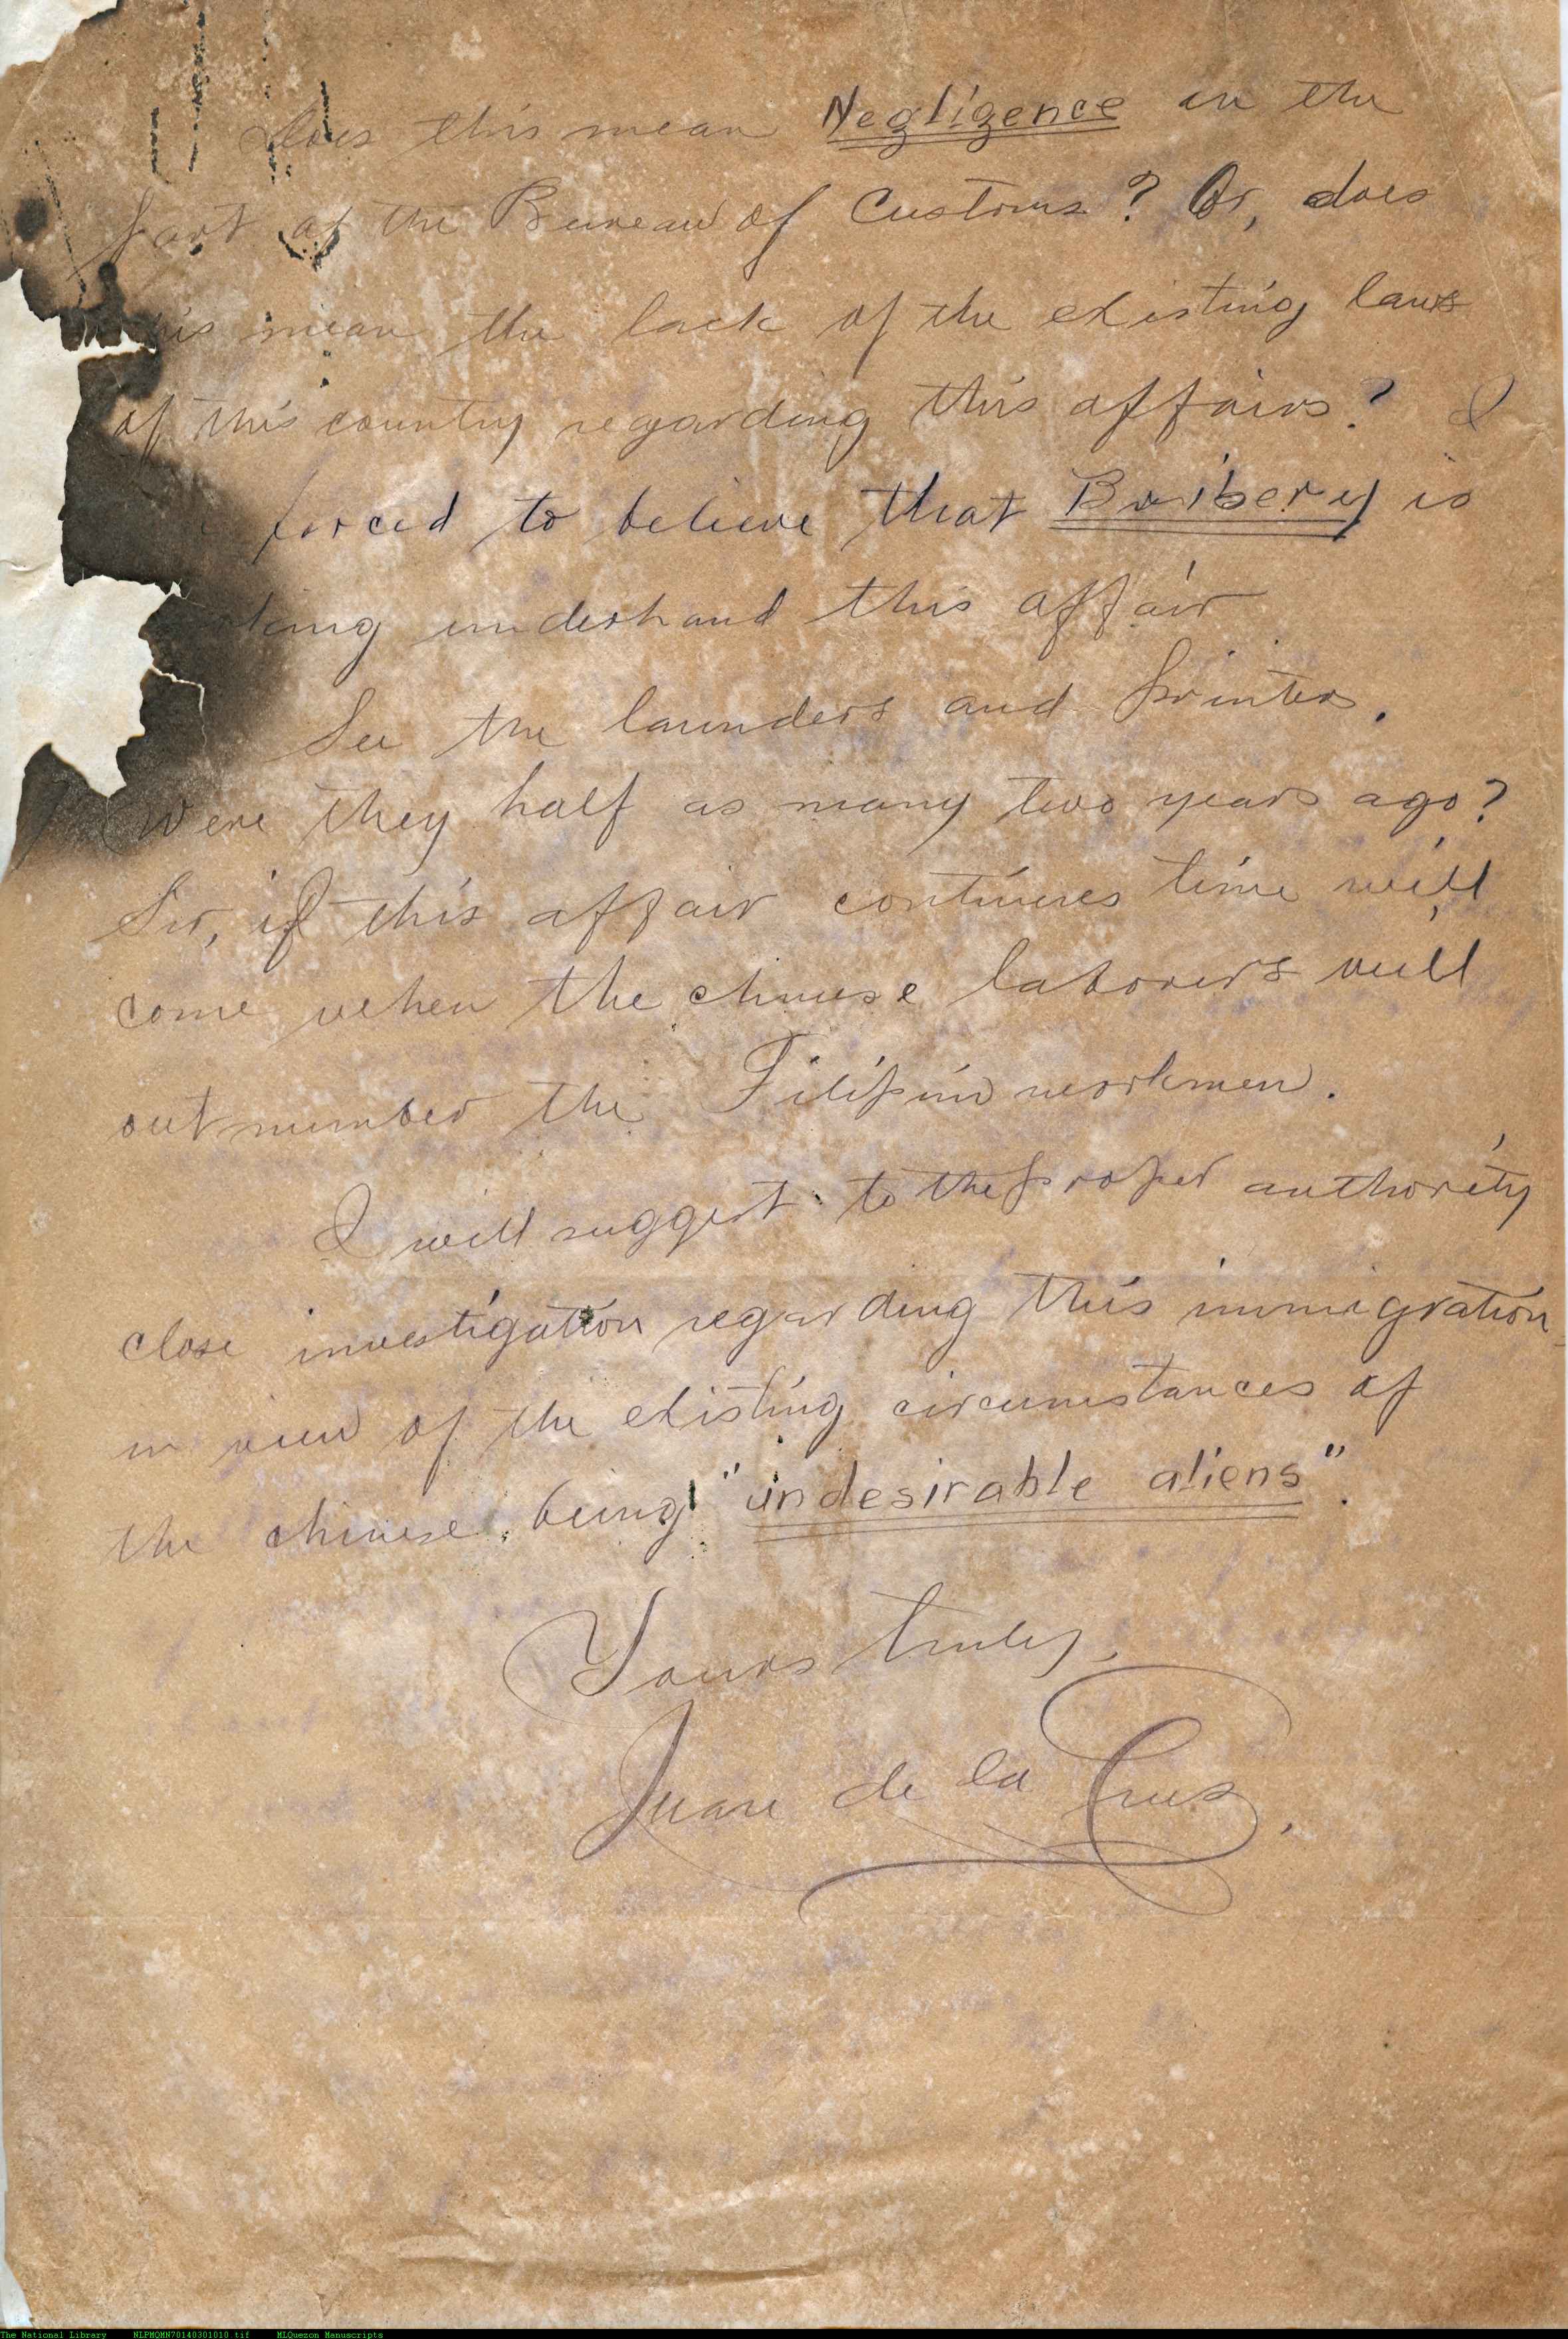 Does this mean Negligence on the
part of the Bureau of Customs? Or, does
this mean the lack of the existing laws
of this country regarding this affairs? I
forced to believe that Bribery is
king underhand this affair
See the launders and printers.
Were they half as many two years ago?
Sir, if this affair continues time will
come when the chinese laborers will
out number the Filipino workmen.
I will suggest to the proper authority
close investigation regarding this immigration
in view of the existing circumstances of
the chinese being "undesirable aliens".
Yours truly,
Juan de la Cruz.
The National Library NLPMQMN70140301010.tif MLQuezon Manuscripts